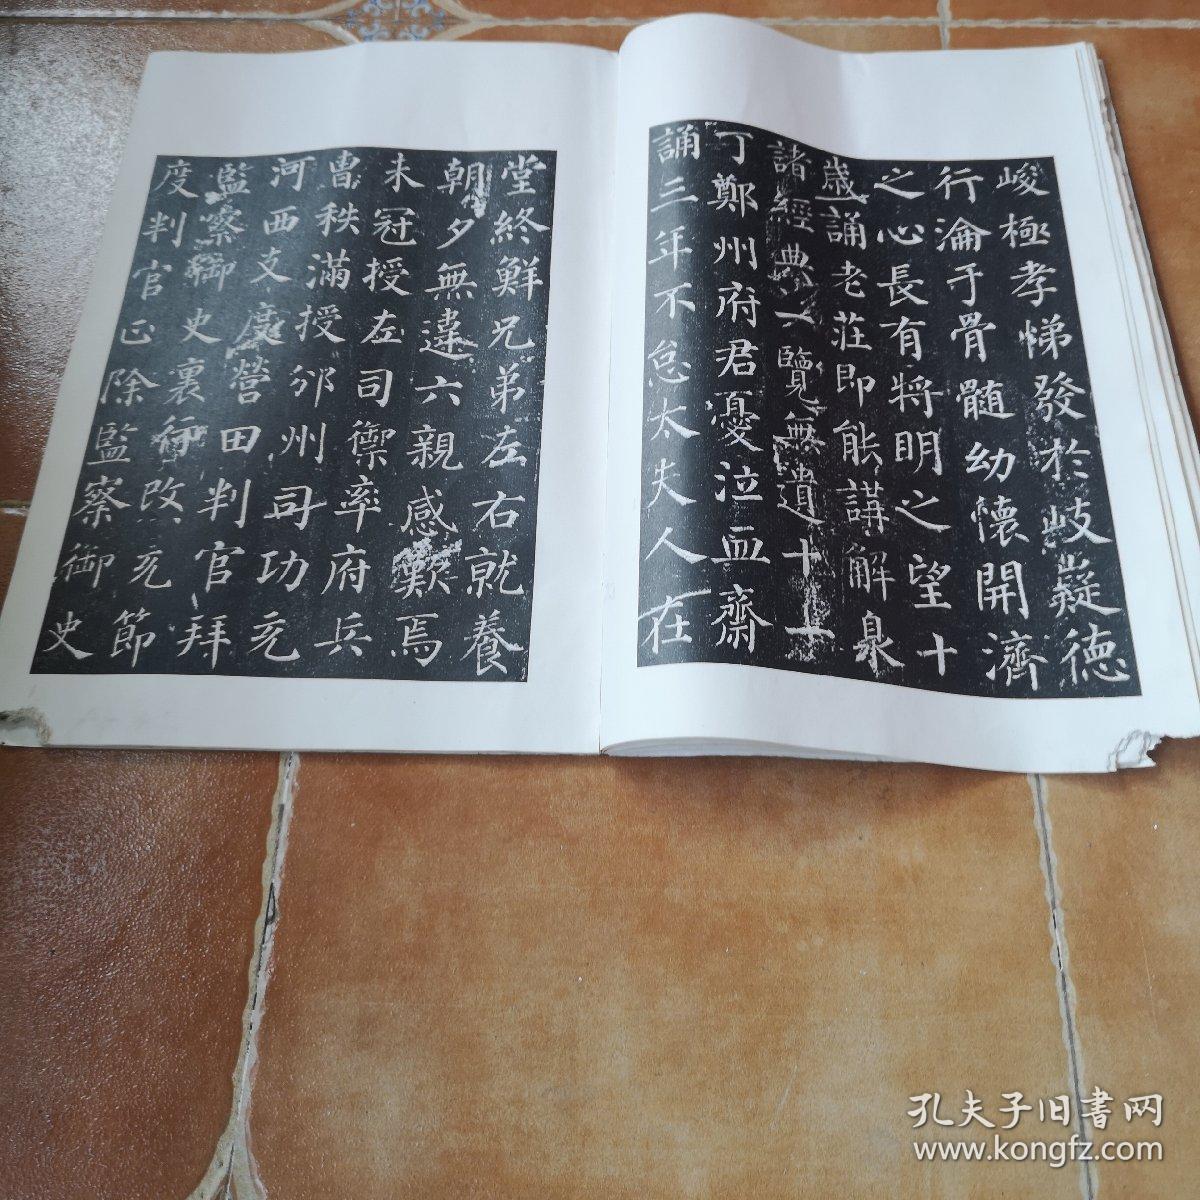 峻極孝悌發於岐嶷德
行淪于骨髓幼懷開濟
之心長有將明之望十
歲誦老莊即能講解臮
諸經典一覽無遺十一
丁鄭州府君憂泣血齋
誦三年不怠太夫人在
堂終鮮兄弟左右就養
朝夕無違六親感歎焉
未冠授左司禦率府兵
曹秩滿授邠州司功充
河西支度營田判官拜
監察御史裏行改充節
度判官正除監察御史
孔夫子旧書网
www.kongfz.com